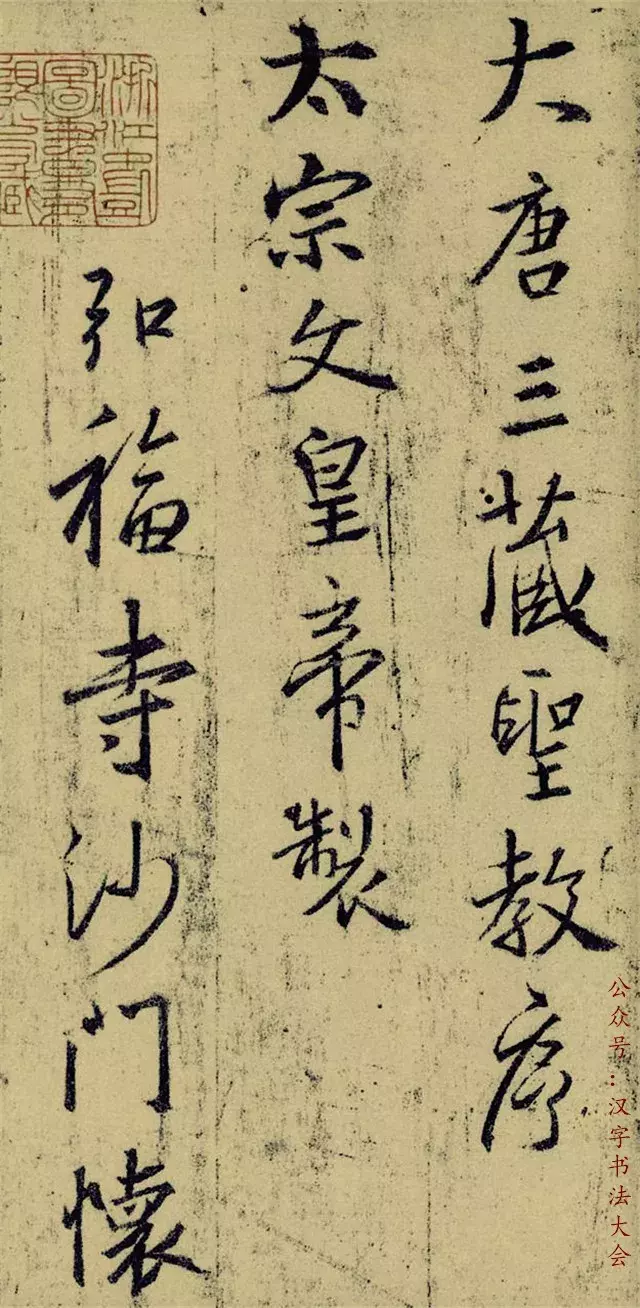 大唐三藏聖教序
太宗文皇帝製
弘福寺沙門懷
公众号:汉字书法大会